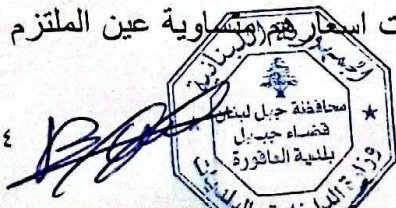 ت اسعارهم متساوية عين الملتزم
الجمهورية اللبنانية
محافظة جبل لبنان
قضاء جبيل
بلدية العاقورة
وزارة الداخلية والبلديات
٤